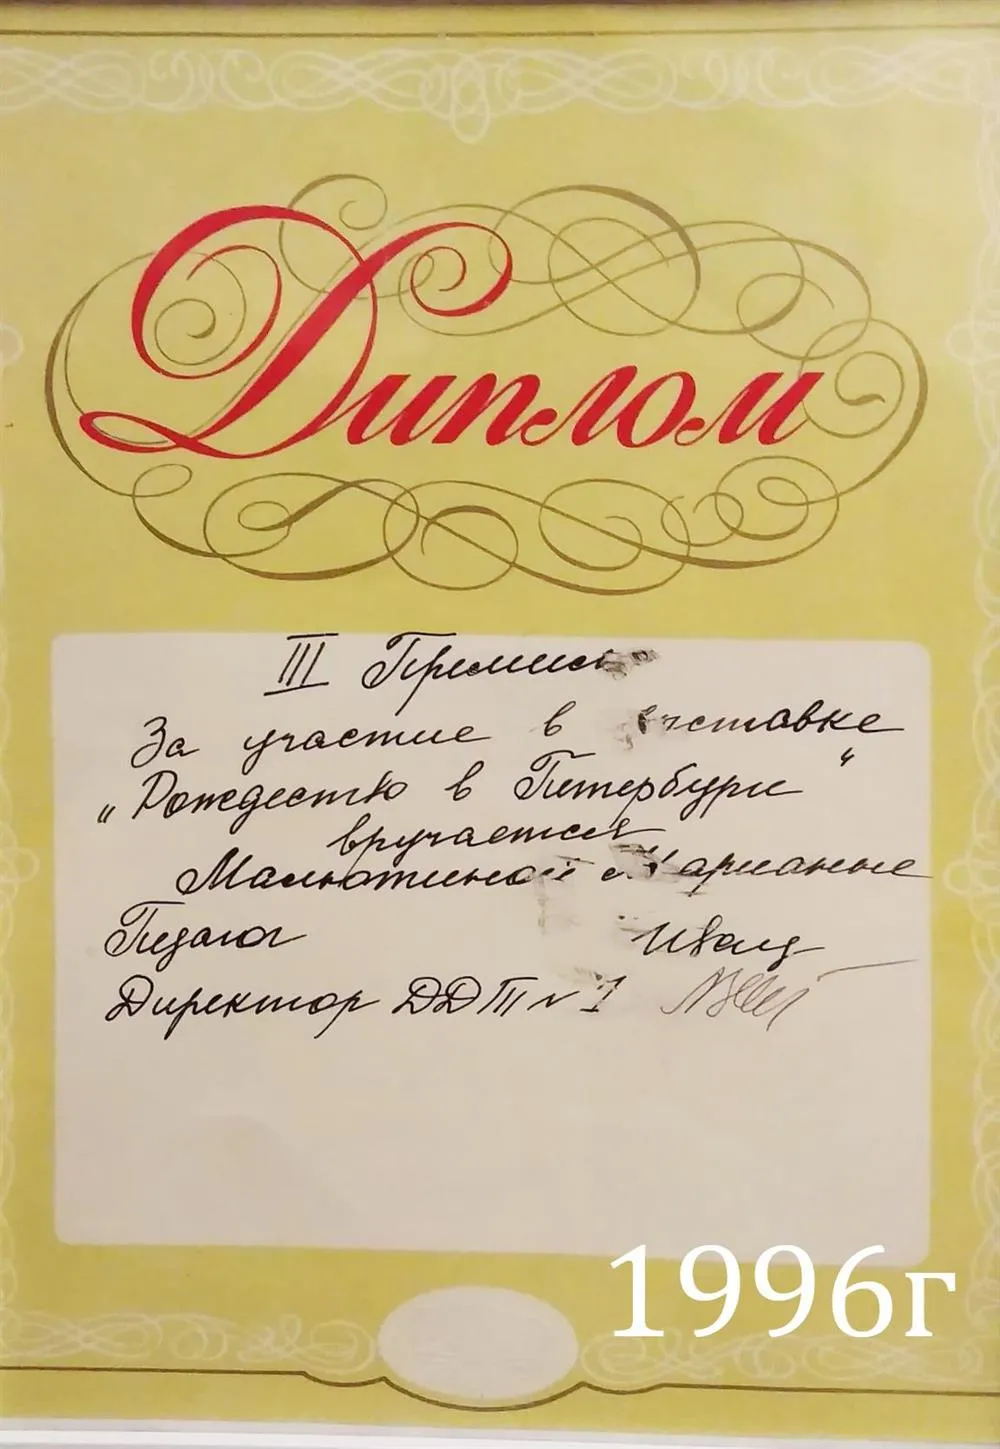 Диплом
III Премия
За участие в выставке
„Рождество в Петербурге“
вручается
Малютиной Марианне
Педагог
Директор ДДТ № 1
1996г